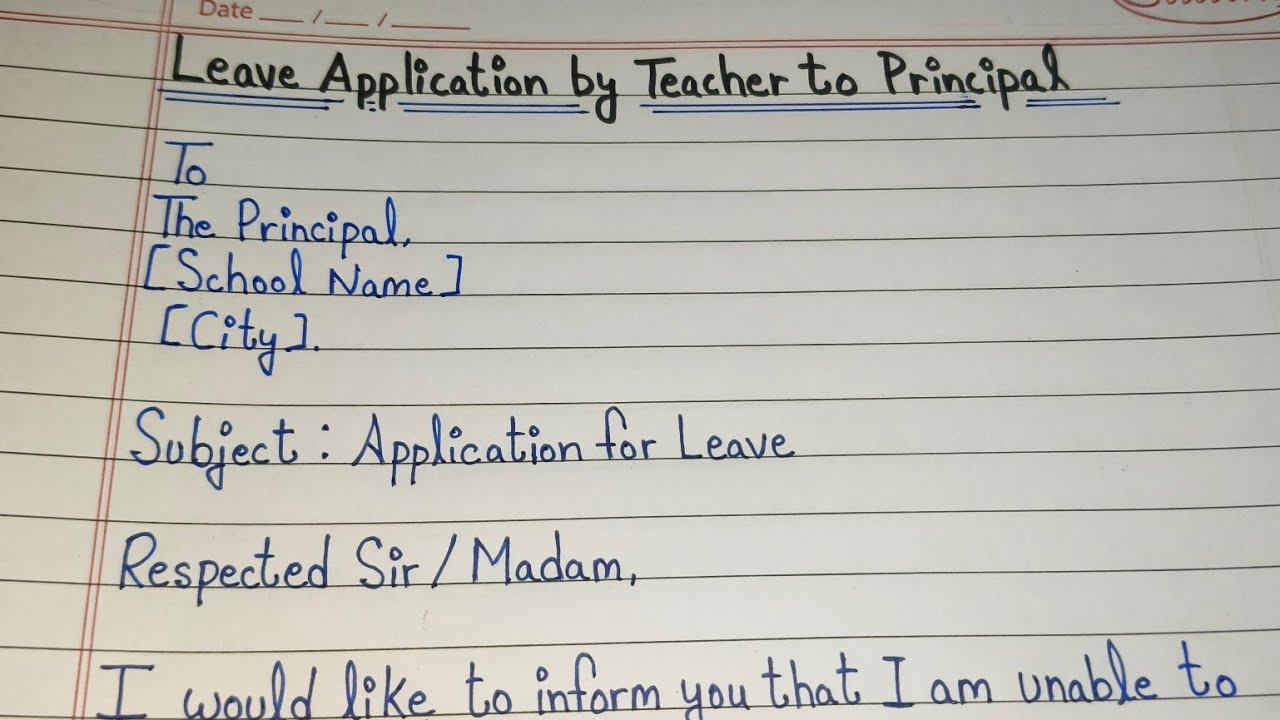 Date ___ /___ /_____
Leave Application by Teacher to Principal
To
The Principal,
[School Name]
[City].
Subject : Application for Leave
Respected Sir / Madam,
I would like to inform you that I am unable to